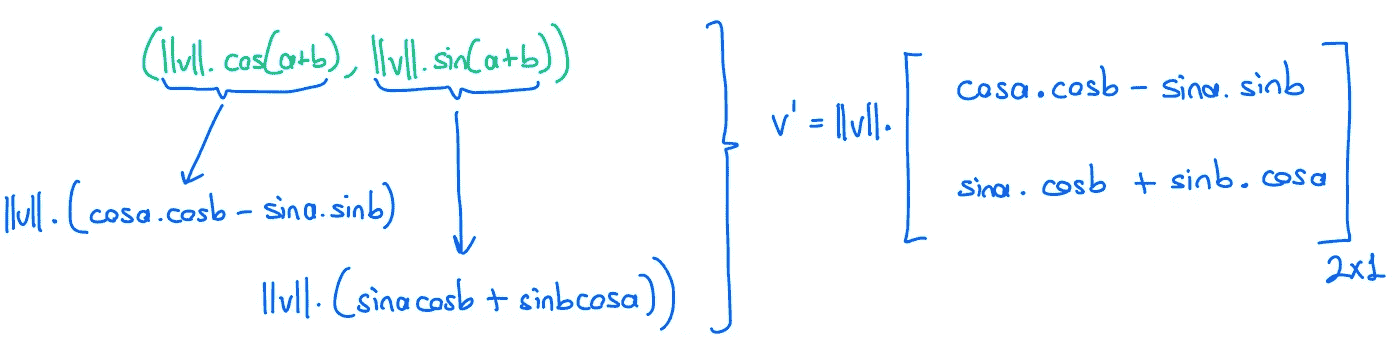 (||v||. cos(a+b), ||v||. sin(a+b))
||v||. (cosa.cosb - sina.sinb)
||v||. (sinacosb + sinbcosa))
v' = ||v||.
cosa.cosb - sina. sinb
sina. cosb + sinb. cosa
2x1